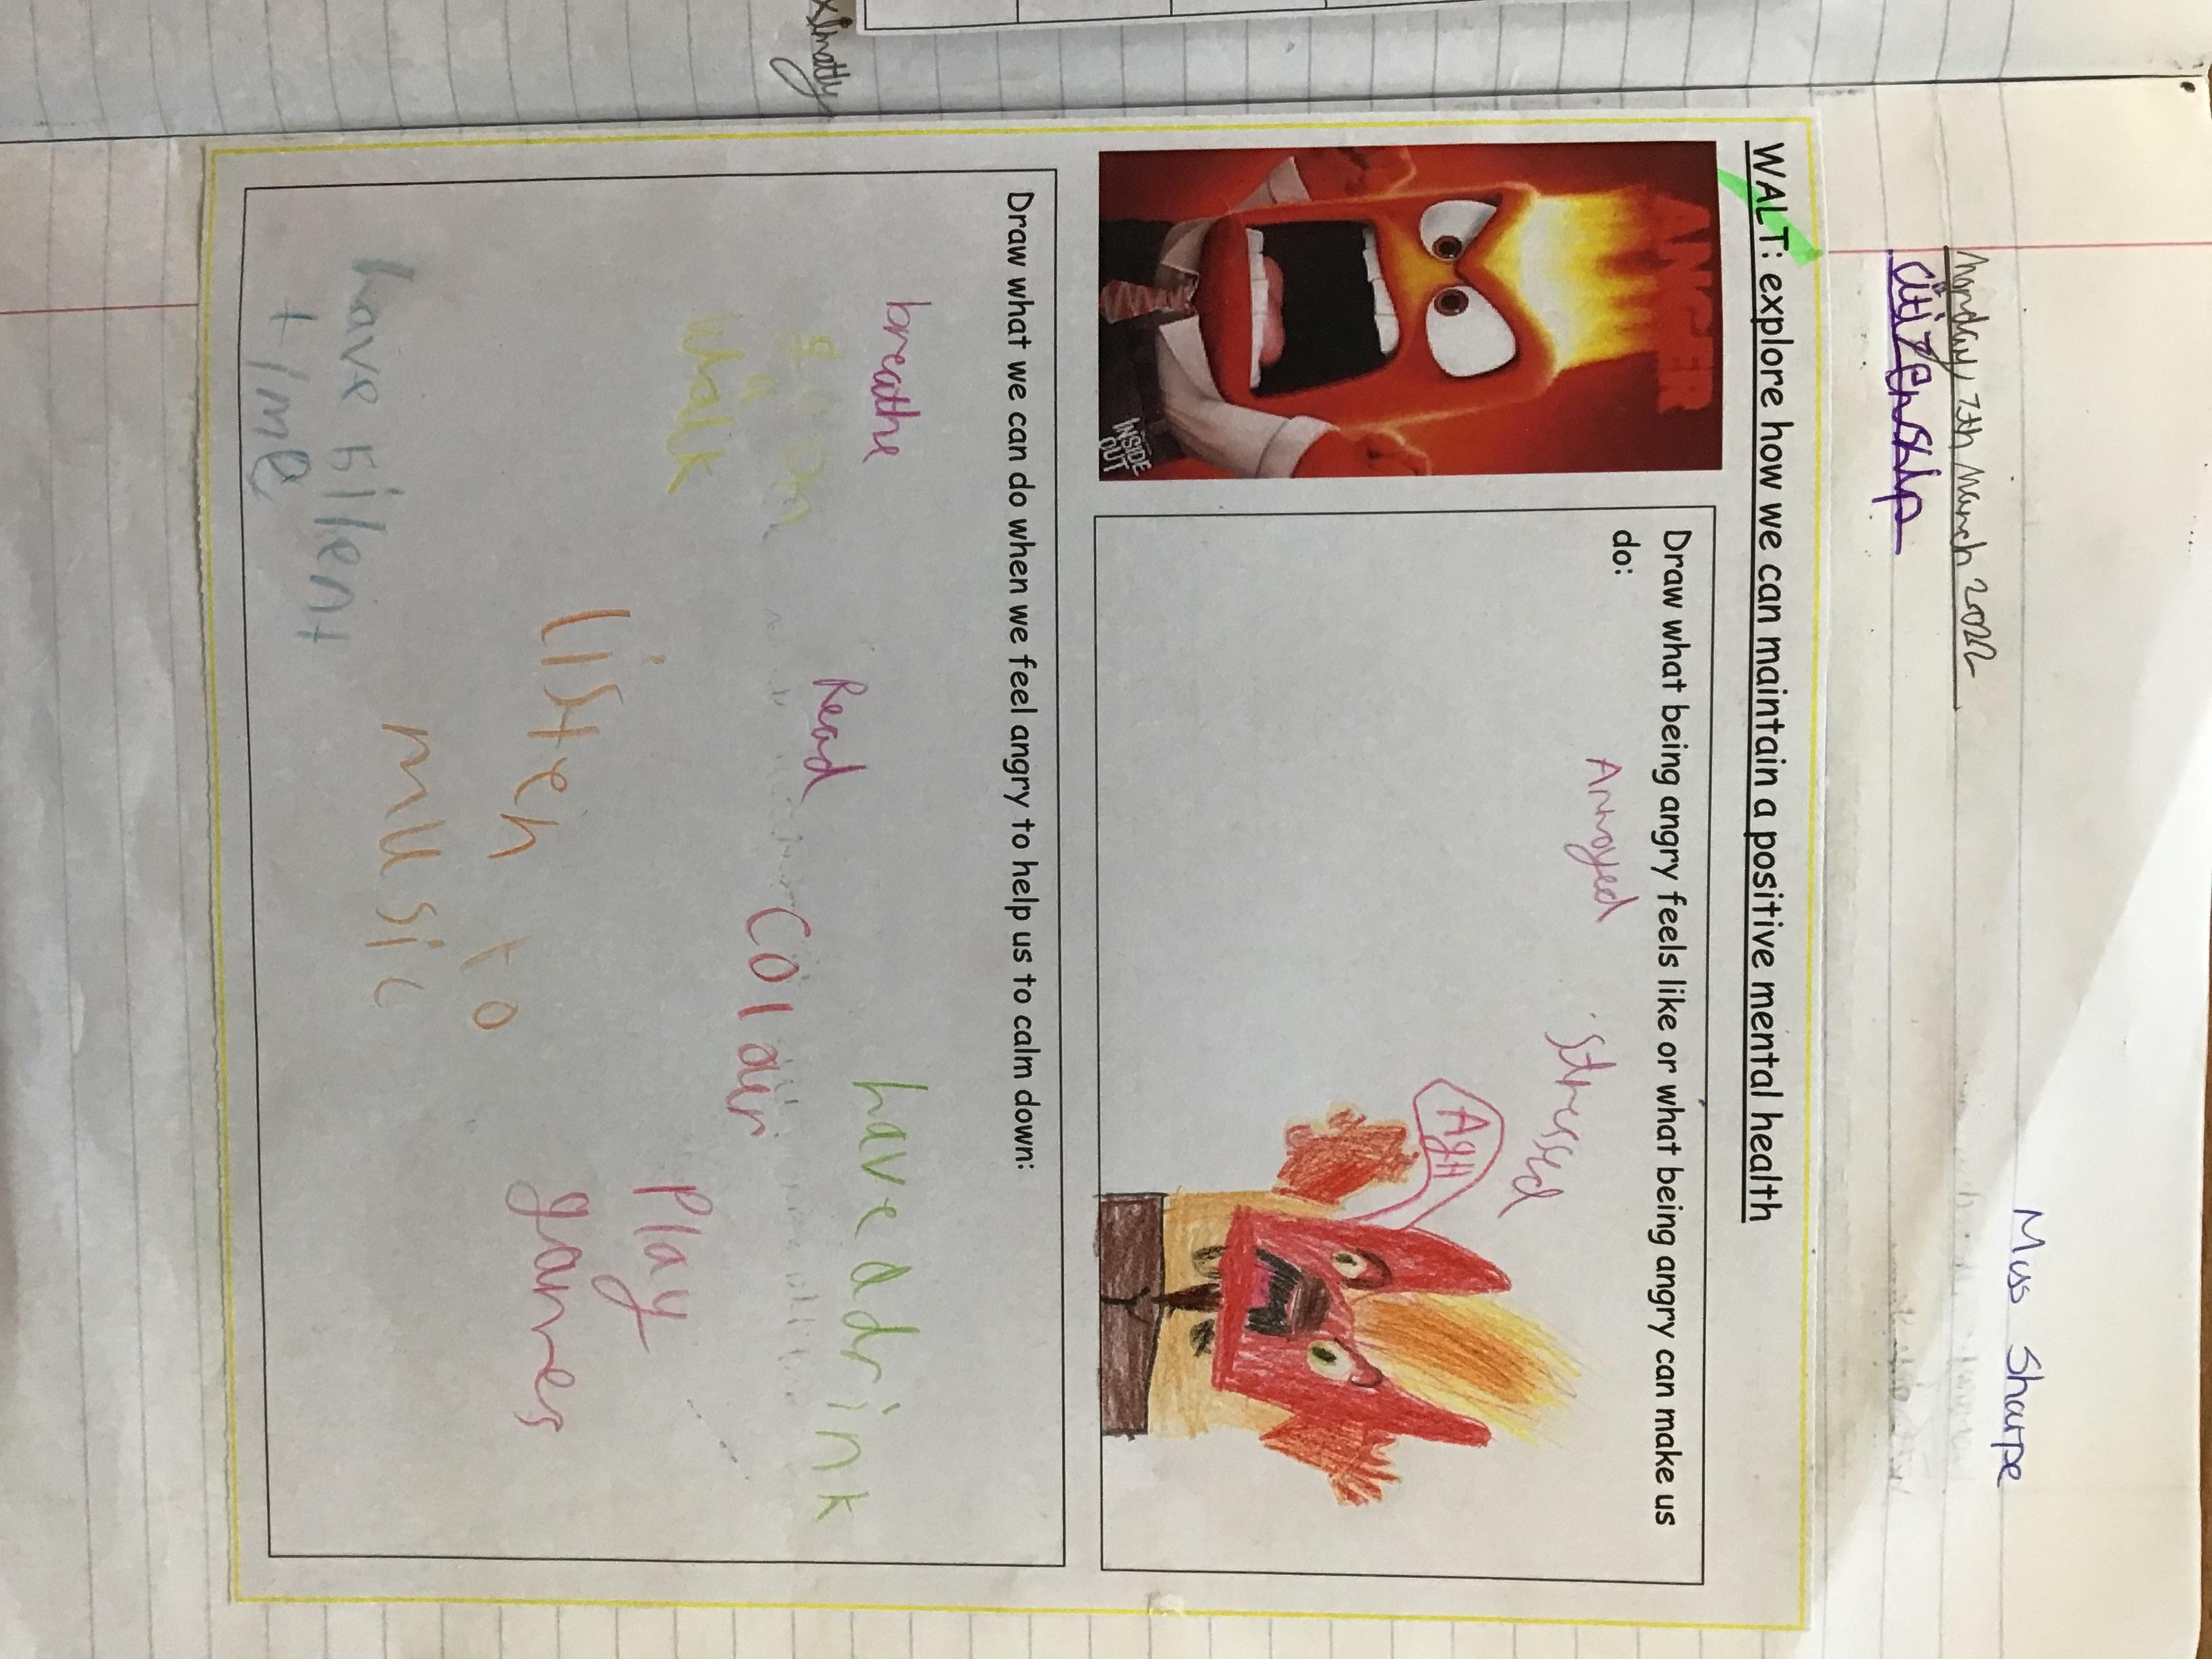 Miss Sharpe
Monday 7th March 2022
Citizenship
WALT: explore how we can maintain a positive mental health
ANGER
INSIDE
OUT
Draw what being angry feels like or what being angry can make us
do:
Annoyed
stressed
Agh
Draw what we can do when we feel angry to help us to calm down:
breathe
go on
a
walk
Read
Colour
have a drink
Play
games
listen to
music
have silent
time